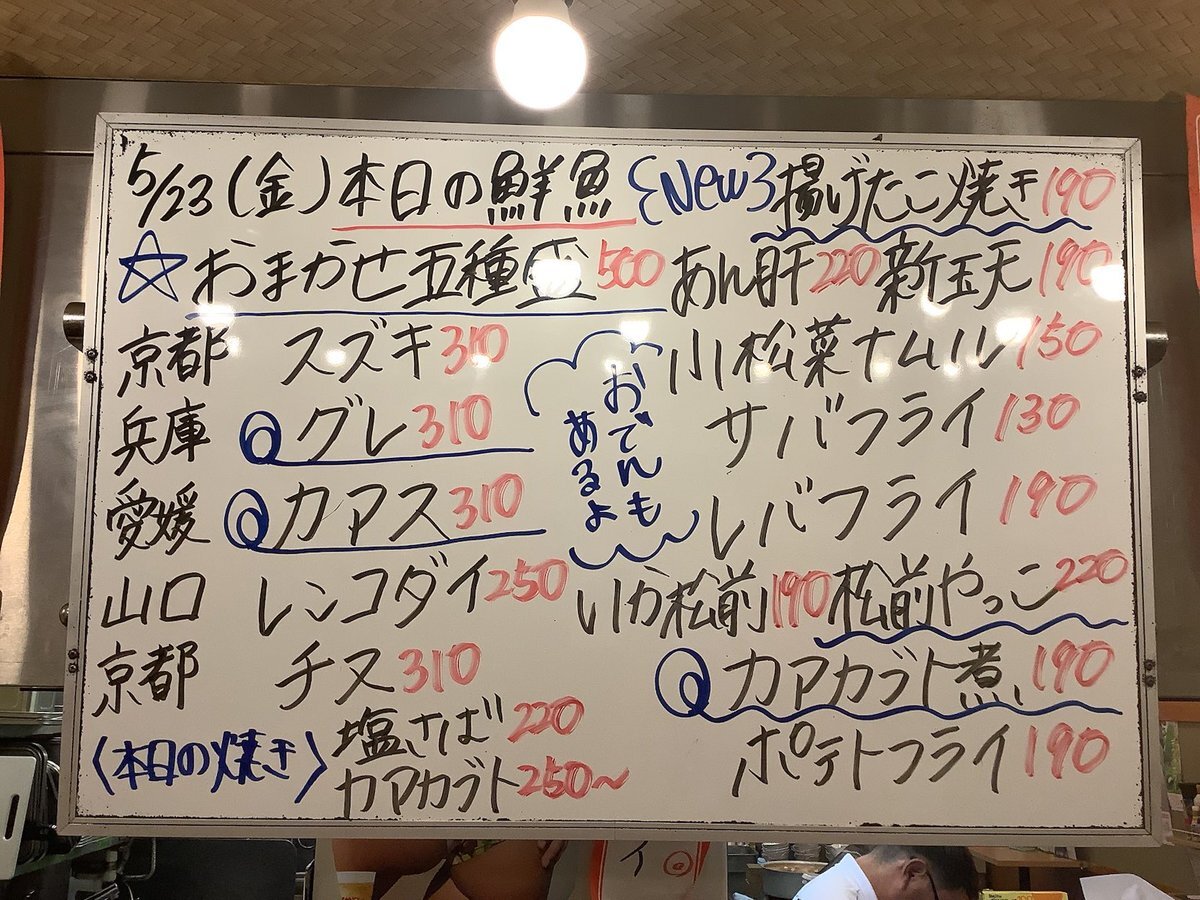 5/23(金)本日の鮮魚
☆おまかせ五種盛500
京都 スズキ310
兵庫 グレ310
愛媛 カマス310
山口 レンコダイ250
京都 チヌ310
〈本日の焼き〉
塩さば220
カマカブト250〜
おでんも
あるよ
{New}揚げたこ焼き190
あん肝220 新玉天190
小松菜ナムル150
サバフライ130
レバフライ190
いか松前190 松前やっこ220
カマカブト煮190
ポテトフライ190
イ